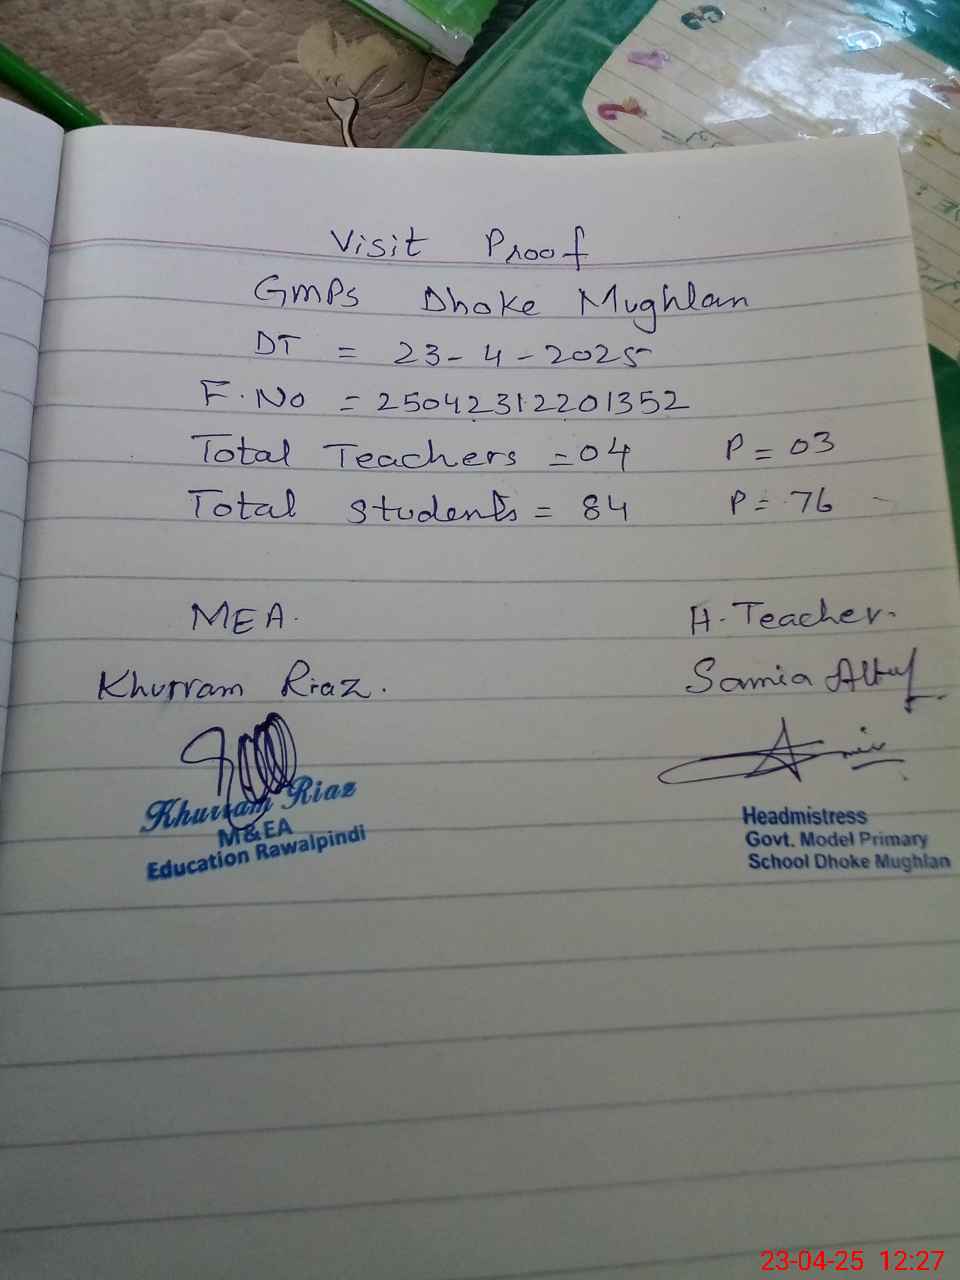 Visit Proof
GMPS Dhoke Mughlan
DT = 23-4-2025
F.No = 25042312201352
Total Teachers = 04 P = 03
Total Students = 84 P = 76
MEA. H.Teacher.
Khurram Riaz. Samia Altaf
Khurram Riaz
M&EA
Education Rawalpindi
Headmistress
Govt. Model Primary
School Dhoke Mughlan
23-04-25 12:27